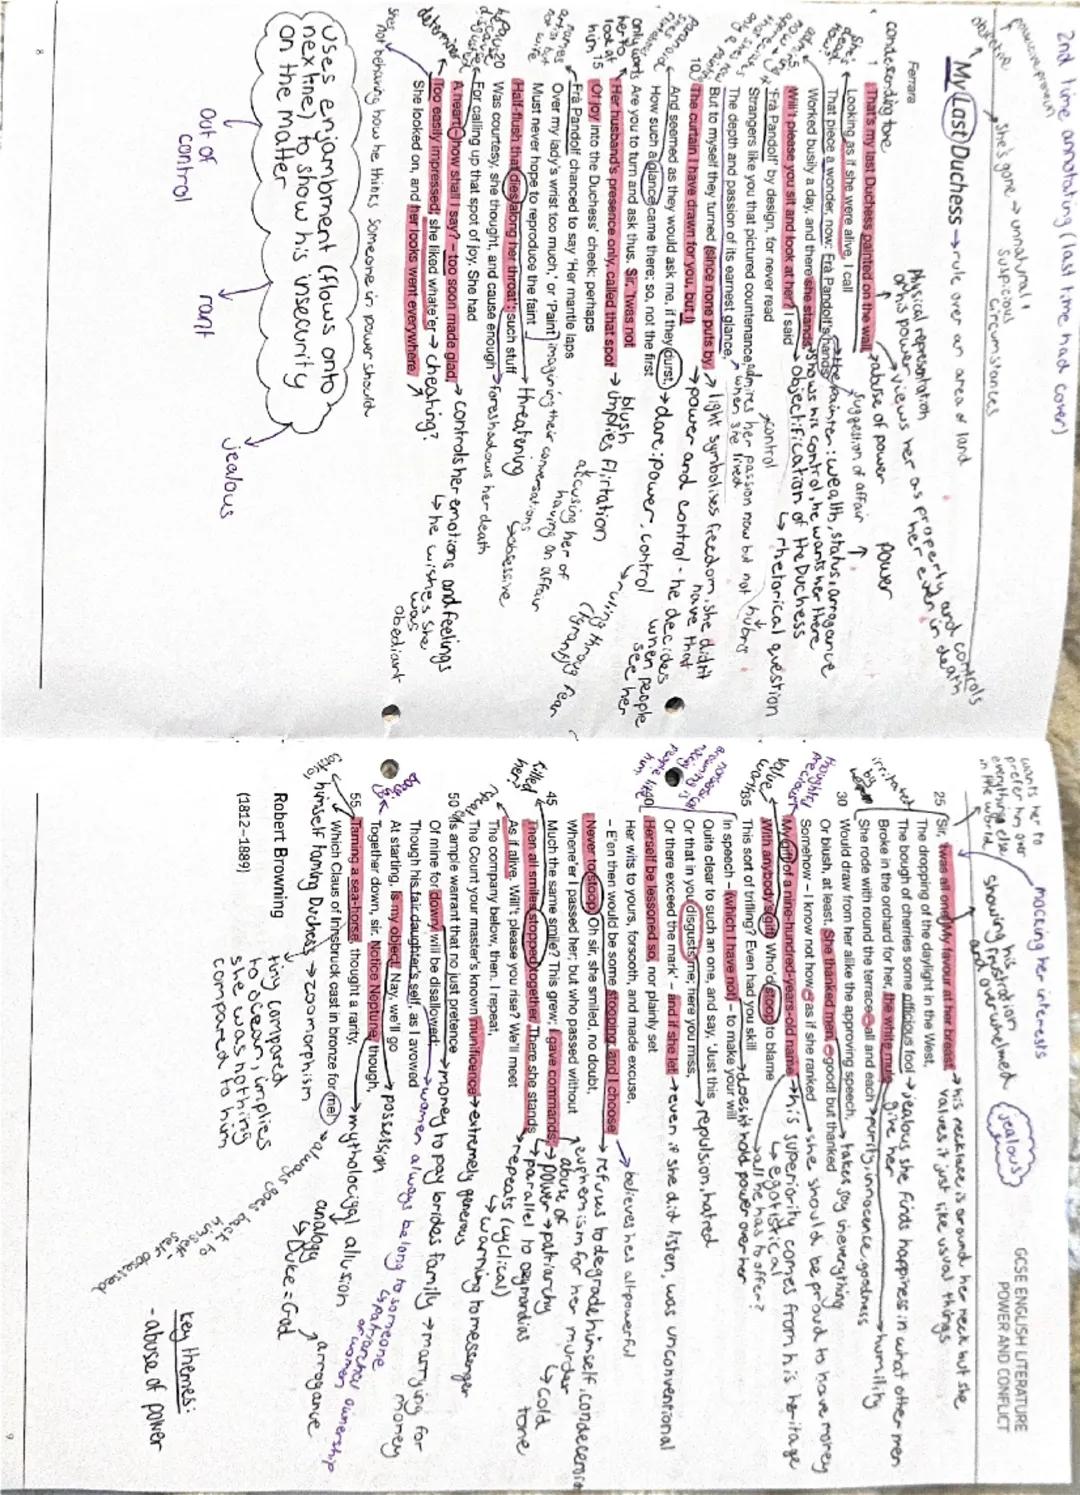 2nd time annotating (last time had cover)
possessive pronoun
objective
she's gone → unnatural,
suspicious
circumstances
My Last Duchess → rule over an area of land
condescending tone
Physical representation
of his power
views her as property and controls
her even in death
Ferrara
1 That's my last Duchess painted on the wall, → abuse of power
power
Looking as if she were alive. I call
suggestion of affair
That piece a wonder, now: Frà Pandolf's hands → the painter: wealth, status, arrogance
Worked busily a day, and there she stands. → shows his control, he wants her there
5 Will't please you sit and look at her? I said → Objectification of the Duchess
↳ rhetorical question
'Frà Pandolf' by design, for never read
control
Strangers like you that pictured countenance, admires her passion now but not
when she lived
hubris
The depth and passion of its earnest glance,
But to myself they turned (since none puts by → light symbolises freedom, she didn't
have that
10 The curtain I have drawn for you, but I) → power and control - he decides
when people
see her
And seemed as they would ask me, if they durst, → dare: power, control
How such a glance came there; so, not the first
Are you to turn and ask thus. Sir, 'twas not
Her husband's presence only, called that spot → blush
implies flirtation
15 Of joy into the Duchess' cheek: perhaps
Frà Pandolf chanced to say 'Her mantle laps
accusing her of
having an affair
Over my lady's wrist too much,' or 'Paint
imagining their conversations
↳ obsessive
Must never hope to reproduce the faint
Half-flush that dies along her throat'; such stuff → threatening
20 Was courtesy, she thought, and cause enough → foreshadows her death
For calling up that spot of joy. She had
A heart – how shall I say? – too soon made glad, → controls her emotions and feelings
↳ he wishes she
was
obediant
Too easily impressed; she liked whate'er → cheating?
She looked on, and her looks went everywhere.
she's not behaving how he thinks someone in power should
Uses enjambment (flows onto
next line) to show his insecurity
on the matter
Out of
control
rant
jealous
8
GCSE ENGLISH LITERATURE
POWER AND CONFLICT
wants her to
prefer him over
everything else
in the world
mocking her interests
showing his
frustration
and overwhelmed
jealous
25 Sir, 'twas all one! My favour at her breast, → his necklace is around her neck but she
values it just like usual things
The dropping of the daylight in the West,
The bough of cherries some officious fool → jealous she finds happiness in what other men
give her
irritated
by
Broke in the orchard for her, the white mule → humility
She rode with round the terrace – all and each → purity, innocence, goodness
30 Would draw from her alike the approving speech, → takes joy in everything
Or blush, at least. She thanked men, – good! but thanked
Somehow – I know not how – as if she ranked → she should be proud to have
My gift of a nine-hundred-years-old name → his superiority comes from his heritage
↳ egotistical
With anybody's gift. Who'd stoop to blame → all he has to offer?
35 This sort of trifling? Even had you skill → doesn't hold power over her
In speech – (which I have not) – to make your will
Quite clear to such an one, and say, 'Just this
Or that in you disgusts me; here you miss, → repulsion, hatred
Or there exceed the mark' – and if she let → even if she did listen, was unconventional
40 Herself be lessoned so, nor plainly set
Her wits to yours, forsooth, and made excuse,
– E'en then would be some stooping, and I choose → believes hes all powerful
Never to stoop. Oh sir, she smiled, no doubt, → refuses to degrade himself, condescending
Whene'er I passed her; but who passed without
45 Much the same smile? This grew; I gave commands; euphemism for her murder
abuse of
power → patriarchy
↳ cold
tone
Then all smiles stopped together. There she stands → parallel to ozymandias
killed
her
As if alive. Will't please you rise? We'll meet → repeats (cyclical)
The company below, then. I repeat, ↳ warning to messenger
The Count your master's known munificence → extremely generous
50 Is ample warrant that no just pretence
Of mine for dowry will be disallowed; → money to pay brides family → marrying for
money
Though his fair daughter's self, as I avowed → women always belong to someone
↳ patriarchy
At starting, is my object. Nay, we'll go → possession
Together down, sir. Notice Neptune, though,
55 Taming a sea-horse, thought a rarity, → mythological allusion
analogy
↳ Duke = God
arrogance
Which Claus of Innsbruck cast in bronze for me! → always goes back to
himself
self obsessed
himself taming Duchess → zoomorphism
tiny compared
to ocean, implies
she was nothing
compared to him
Robert Browning
(1812–1889)
key themes:
- abuse of power
9